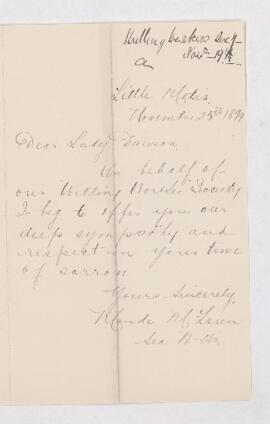 Willing Workers Socy
Little Metis,
November 25th 1899
Dear Lady Dawson,
On behalf of
our Willing Worker Society
I beg to offer you our
deep sympathy and
respect in your time
of sorrow.
Yours Sincerely,
McLaren
Sec